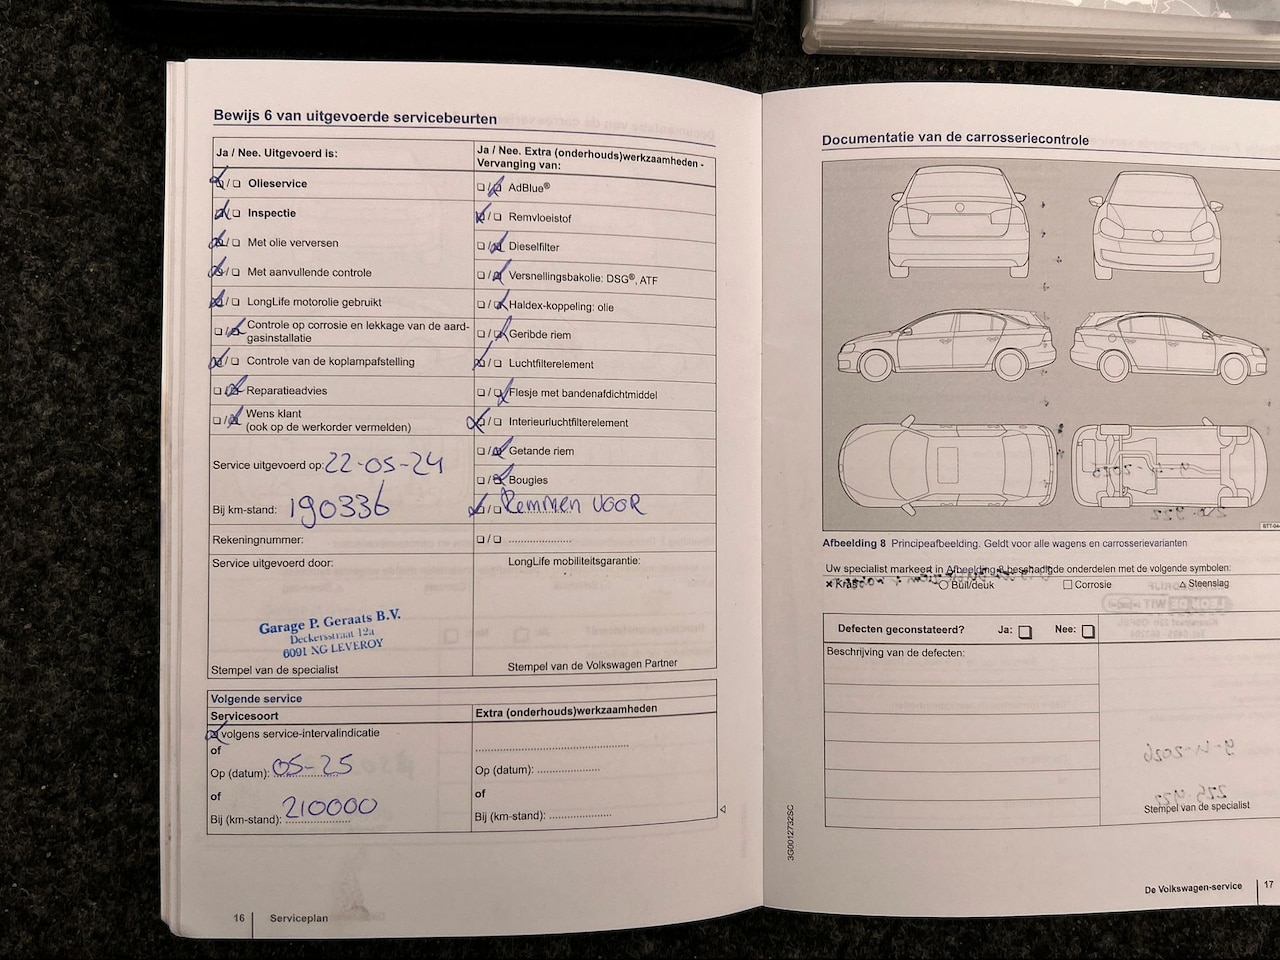 Bewijs 6 van uitgevoerde servicebeurten
Ja / Nee. Uitgevoerd is:
Olieservice
Inspectie
Met olie verversen
Met aanvullende controle
LongLife motorolie gebruikt
Controle op corrosie en lekkage van de aard-
gasinstallatie
Controle van de koplampafstelling
Reparatieadvies
Wens klant
(ook op de werkorder vermelden)
Service uitgevoerd op: 22-05-24
Bij km-stand: 190336
Rekeningnummer:
Service uitgevoerd door:
Garage P. Geraats B.V.
Deckersstraat 12a
6091 NG LEVEROY
Stempel van de specialist
Ja / Nee. Extra (onderhouds)werkzaamheden -
Vervanging van:
AdBlue®
Remvloeistof
Dieselfilter
Versnellingsbakolie: DSG®, ATF
Haldex-koppeling: olie
Geribde riem
Luchtfilterelement
Flesje met bandenafdichtmiddel
Interieurluchtfilterelement
Getande riem
Bougies
Remmen voor
LongLife mobiliteitsgarantie:
Stempel van de Volkswagen Partner
Volgende service
Servicesoort
volgens service-intervalindicatie
of
Op (datum): 05-25
of
Bij (km-stand): 210000
Extra (onderhouds)werkzaamheden
Op (datum):
of
Bij (km-stand):
16 Serviceplan
Documentatie van de carrosseriecontrole
Afbeelding 8 Principeafbeelding. Geldt voor alle wagens en carrosserievarianten
Uw specialist markeert in Afbeelding 8 beschadigde onderdelen met de volgende symbolen:
Kras
Buil/deuk
Corrosie
Steenslag
Defecten geconstateerd? Ja: Nee:
Beschrijving van de defecten:
Stempel van de specialist
3G0012732SC
De Volkswagen-service 17